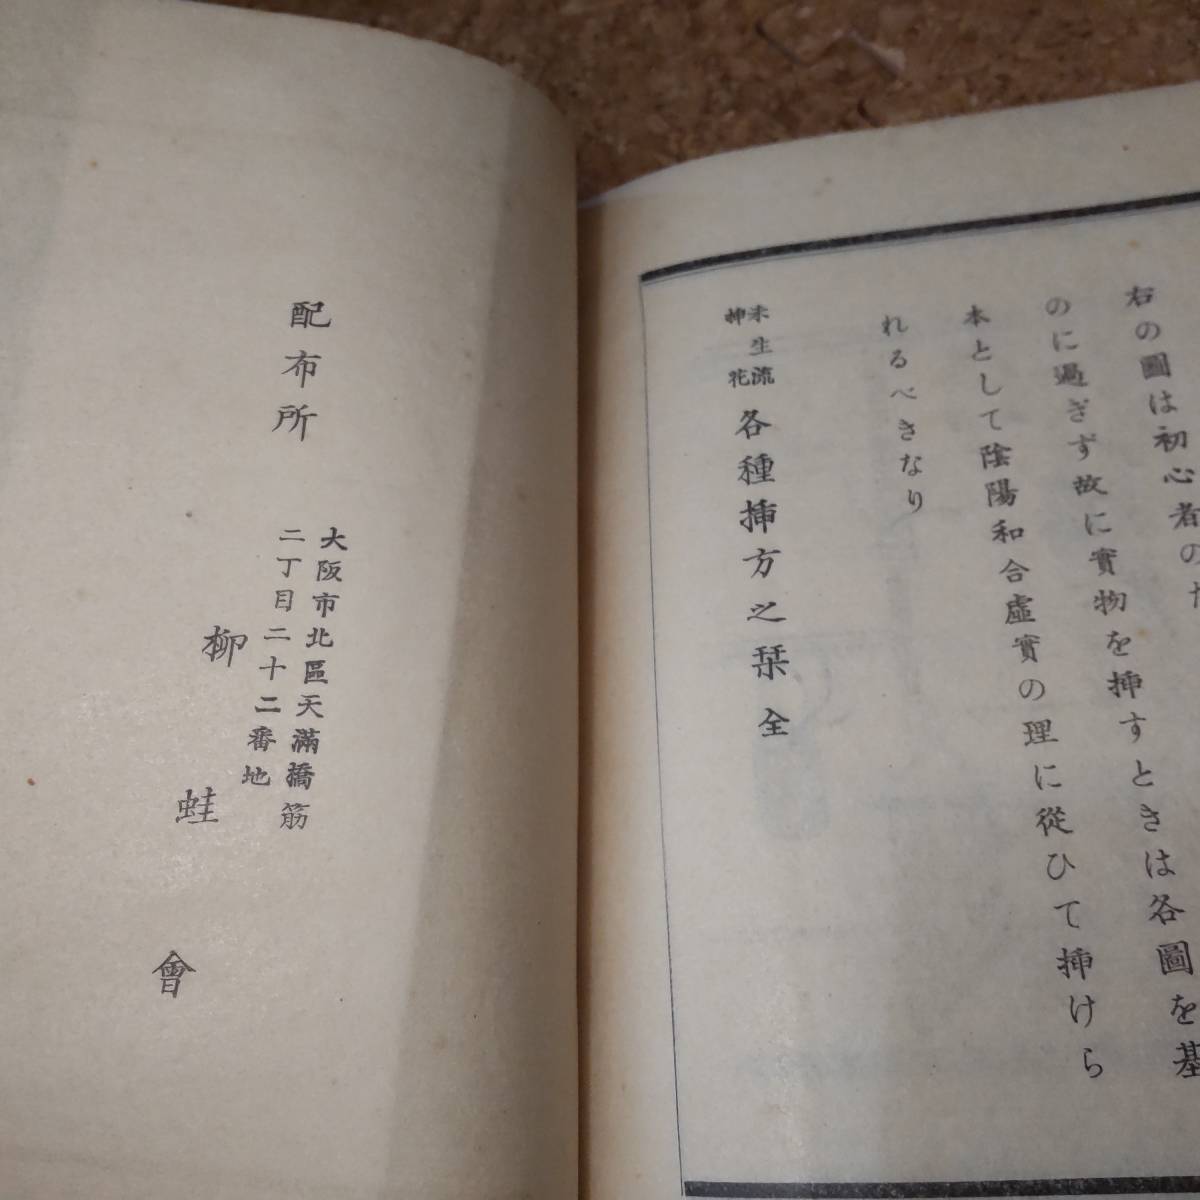 右の圖は初心者の
のに過ぎず故に實物を挿すときは各圖を基
本として陰陽和合虛實の理に從ひて挿けら
れるべきなり
未生流
挿花
各種挿方之栞 全
配布所
大阪市北區天滿橋筋
二丁目二十二番地
柳蛙會